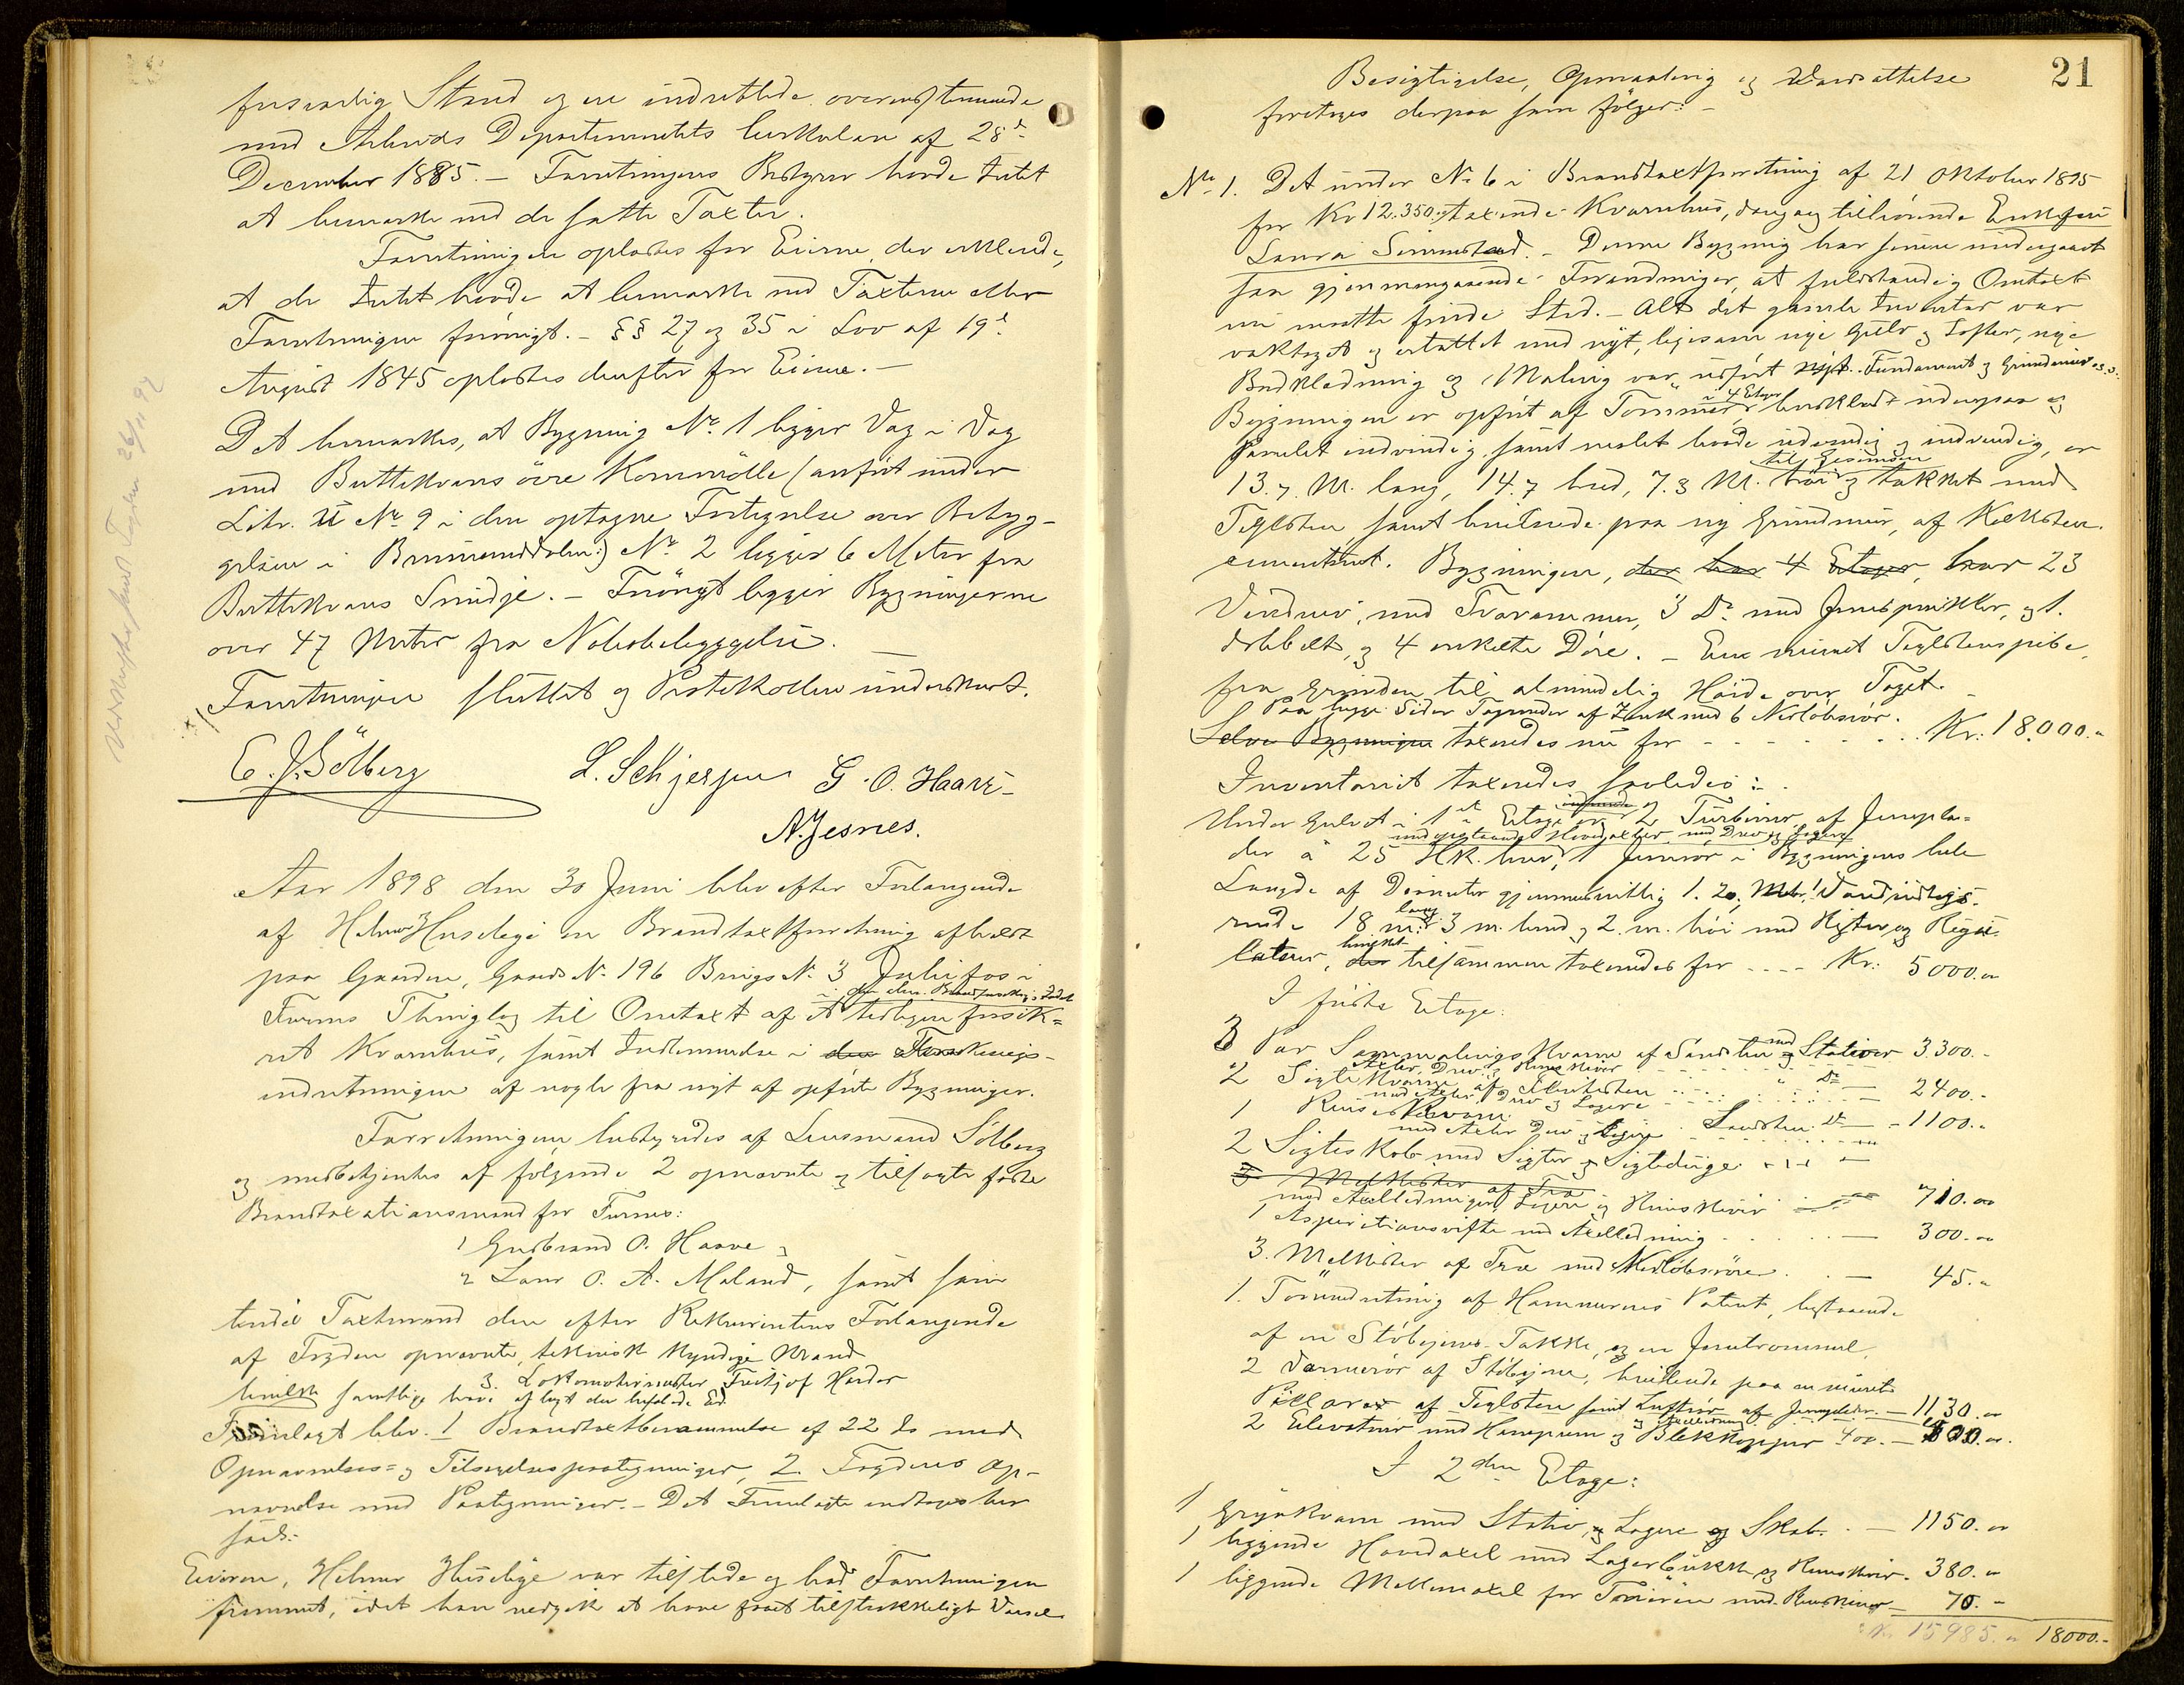 forsvarlig Stand og ere indrettede overensstemmende
med Arbeids Departementets Cirkulære af 28d
December 1885. – Forretningens Bestyrer havde Intet
at bemærke ved de satte Taxter.
Forretningen oplæstes for Eierne, der erklærede,
at de Intet havde at bemærke ved Taxterne eller
Forretningen forøvrigt. – §§ 27 og 35 i Lov af 19d
August 1845 oplæstes derefter for Eierne. –
Det bemærkes, at Bygning No. 1 ligger Væg i Væg
med Buttekværns övre Kornmölle (anført under
Litr. U No. 9 i den optagne Fortegnelse over Bebyg-
gelsen i :) No. 2 ligger 6 Meter fra
Buttekværns Smidje. – Forövrigt ligger Bygningerne
over 47 Meter fra Nabobebyggelse. –
Forretningen sluttet og Protokollen underskrevet.
E. J. Sölberg L. Schjerpen G. O. Haave
N. Jesnes.
Aar 1898 den 30 Juni blev efter Forlangende
af Helmer Huselige en Brandtaxtforretning afholdt
paa Gaarden, Gaards No. 196 Brugs No. 3 Julifos i
i den alm. Brandforsikring i Stad
Furnes Thinglag til Omtaxt af et tidligere forsik=
ret Kværnhus, samt Indlemmelse i den Forsikrings-
indretningen af nogle fra nyt af opførte Bygninger.
Forretningen bestyredes af Lensmand Sölberg
og medbetjentes af følgende 2 opnævnte og tilsagte faste
Brandtaxationsmænd for Furnes:
1 Gudbrand O. Haave
2 Lars O. A. Maland, samt som
tredie Taxtmand den efter Rekvirentens Forlangende
af Fogden opnævnte, teknisk kyndige Mand
3. Lokomotivmester Fritjof Harder
hvilke samtlige have aflagt den befalede Ed.
Fremlagt blev. 1 Brandtaxtberammelse af 22 ds med
Opnævnelses= og Tilsigelsespaategninger, 2. Fogdens Op-
nævnelse med Paategninger. – Det Fremlagte indtages her
saal.
Eieren, Helmer Huselige var tilstede og bad Forretningen
fremmet, idet han vedgik at have faaet tilstrækkeligt Varsel
21
Besigtigelse, Opmaaling og Værdsættelse
foretoges derpaa som følger: –
No. 1. Det under No. 6 i Brandtaxtforretning af 21 Oktober 1895
for Kr 12.350. taxerede Kværnhus, dengang tilhørende Enkefru
Laura Simenstad. – Denne Bygning har senere undergaaet
saa gjennemgaaende Forandringer, at fuldstændig Omtaxt
nu maatte finde Sted. – Alt det gamle Inventar var
væktaget og erstattet med nyt, ligesom nye Gulv og Lofter, nye
Bordklædning og Maling var udført nyt. Fundament og Grundmur o.s.v.
i 4 Etager
Bygningen er opført af Tømmer, bordklædt udenpaa og
panelet indvendig, samt malet baade udvendig og indvendig, er
til Gesimsen
13.7. M. lang, 14.7 bred, 7.3 M. höi og tækket med
Teglsten, samt hvilende paa ny Grundmur, af Kalksten
cementeret. Bygningen, der har 4 Etager, har 23
Vinduer, med Tværrammer, 3 Do med Jernsprinkler, og 1.
dobbelt, og 4 enkelte Döre. – En muret Teglstenspibe
fra Grunden til almindelig Höide over Taget. –
Paa begge Sider Tagrender af Zink med 6 Nedløbsrör.
Selve Bygningen taxeredes nu for - - - - Kr: 18.000.-
Inventariet taxeredes saaledes:
Under Gulvet i 1ste Etage er 2 Turbiner af Jernpla=
med opstaaende Hovedaxler med Drev og Lagere
der á 25 HK. hver, 1 Jernrör i Bygningens hele
Længde af Diameter gjennemsnitlig 1.20, Mtr, Vandindtags-
lang
rende 18 m. 3 m. bred og 2. m. höi med Rister og Regu-
hvilket
latorer, der tilsammen taxeredes for - - - - Kr: 5000.00
I første Etage:
3 Par Sammalingskværne af Sandsten med Stativer 3.300.-
Axler, Drev og Remskiver
2 Sigtekværne af Flintesten - - - - „ Do — 2400.-
med Axler Drev og Lagere
1 Rensekværn Sandsten Do — 1100.-
med Axler Drev og Lagere
2 Sigteskab med Sigter og Sigteduge
3 Melkister af Træ
med Axelledninger Lagere og Remskiver — 710.00
1 Aspirationsvifte med Axelledning - - - — 300.00
3. Melkister af Træ med Nedløbsröre - - — 45.-
1. Törreindretning af Hammernes Patent, bestaaende
af en Stöbejerns-Takke, og en Jerntrommel,
2 Varmerör af Stöbejern, hvilende paa en muret
Pillarer af Teglsten samt Luftrör af Jernplader. — 1130.00
og Axelledning
2 Elevatorer med Hampreim og Blekkopper 400. — 400.00.
I 2den Etage:
1 Grynkværn med Stativ, og Lagere og Skab. - — 1150.00
1 liggende Hovedaxel med Lagerbukke og Remskiver. 380.00
1 liggende Mellemaxel for Törreren med Remskiver — 70.-
Kr. 15985.00 18000.-